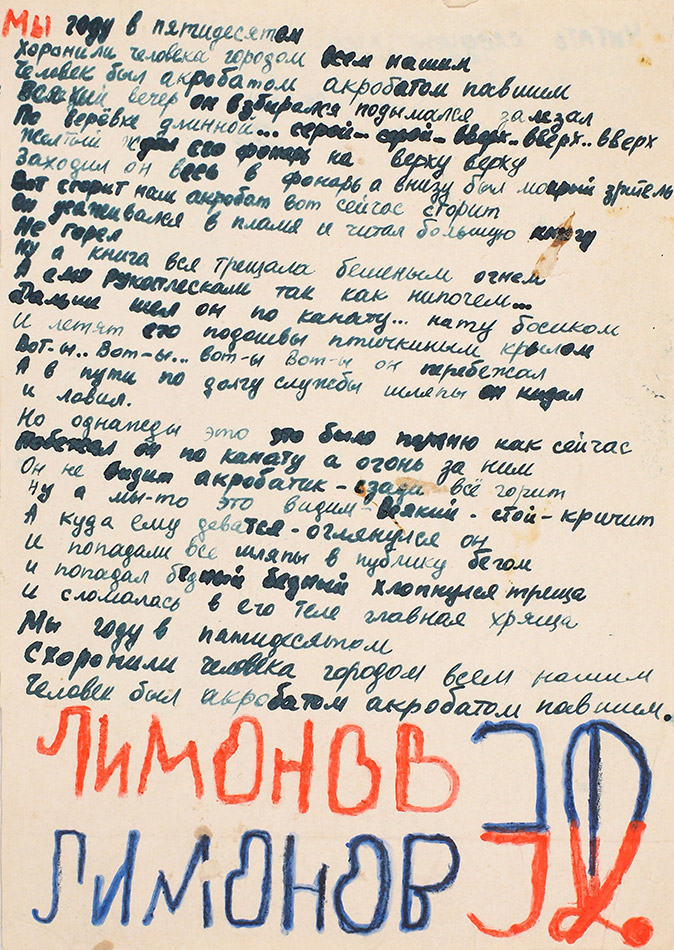 Мы году в пятидесятом
Хоронили человека городом всем нашим
Человек был акробатом акробатом павшим
Всякий вечер он взбирался подымался залезал
По верёвке длинной... серой.. серой.. вверх.. вверх.. вверх
Желтый ждал его фонарь на верху верху
Заходил он весь в фонарь а внизу был мокрый зритель
Вот сгорит наш акробат вот сейчас сгорит
Он усаживался в пламя и читал большую книгу
Не горел
Ну а книга вся трещала бешеным огнем
А ему рукоплескали так как нипочем...
Дальше шел он по канату... нату босиком
И летят его подошвы птичкиным крылом
Вот-ы.. Вот-ы... вот-ы Вот-ы он перебежал
А в пути по долгу службы шляпы он кидал
и ловил.
Но однажды это это было помню как сейчас
Побежал он по канату а огонь за ним
Он не видит акробатик - сзади всё горит
Ну а мы-то это видим - всякий - стой - кричит
А куда ему деватся - оглянулся он
И попадали все шляпы в публику бегом
и попадал бедный бедный хлопнулся треща
и сломалась в его теле главная хряща
Мы году в пятидесятом
Схоронили человека городом всем нашим
Человек был акробатом акробатом павшим.
ЛИМОНОВ
ЛИМОНОВ
ЭД